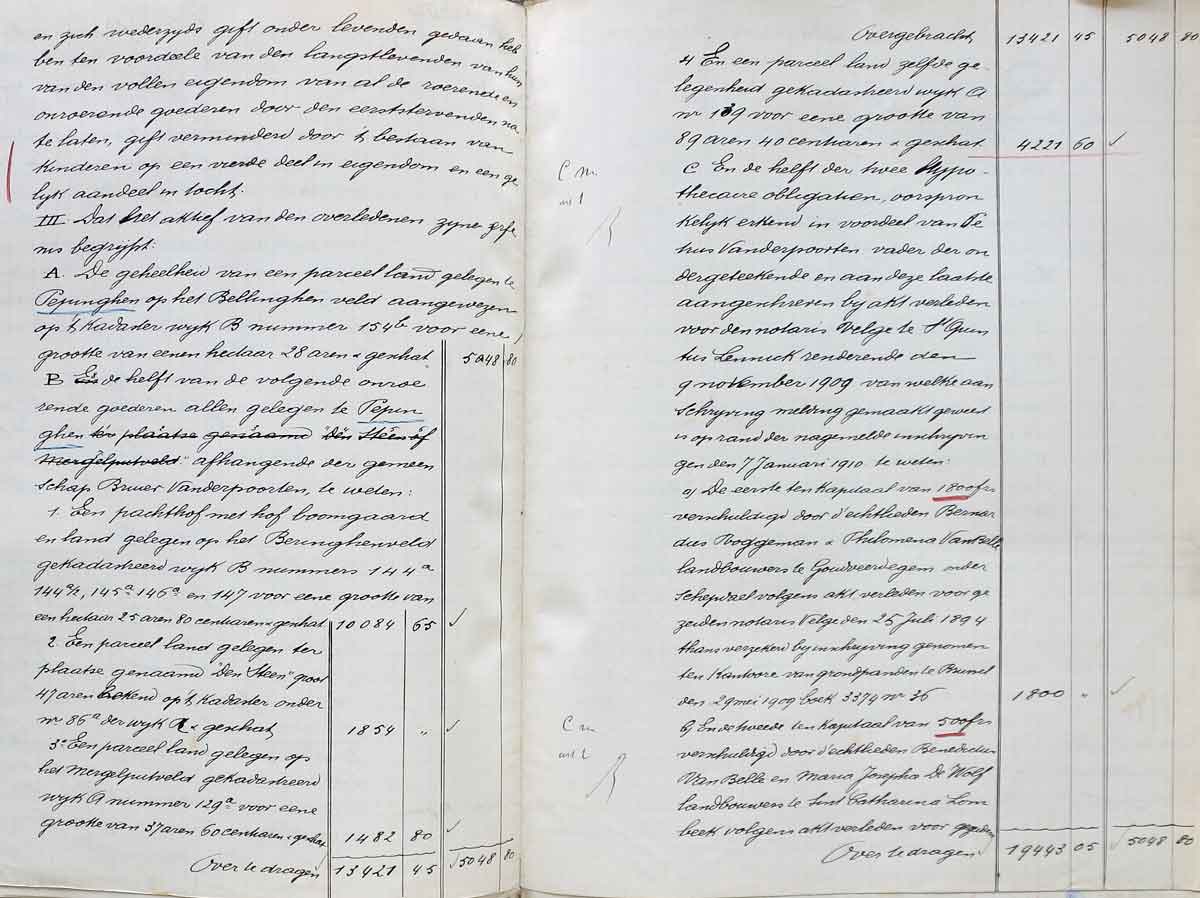 en zich wederzyds gift onder levenden gedaan heb
ben ten voordeele van den langstlevenden van hun
van den vollen eigendom van al de roerende en
onroerende goederen door den eerststervenden na
te laten, gift verminderd door 't bestaan van
kinderen op een vierde deel in eigendom en een ge
lyk aandeel in tocht.
III. Dat het aktief van den overledenen zyne erfe
nis begrypt:
A. De geheelheid van een parceel land gelegen te
Pepinghen op het Bellinghen veld aangewezen
op 't Kadaster wyk B nummer 154b voor eene
grootte van eenen hectaar 28 aren & geschat 5048 80
B de helft van de volgende onroe
rende goederen allen gelegen te Pepin
ghen ter plaatse genaamd "den Steen of
Mergelputveld" afhangende der gemeen
schap Bruer Vanderpoorten, te weten:
1. Een pachthof met hof boomgaard
en land gelegen op het Beringhenveld
gekadastreerd wyk B nummers 144a
144a/2, 145a 146a en 147 voor eene grootte van
een hectaar 25 aren 80 centiaren & geschat 10084 65 ✓
2. Een parceel land gelegen ter
plaatse genaamd "Den Steen" groot
47 aren bekend op 't Kadaster onder
nr 86a der wyk A & geschat 1854 " ✓
3e Een parceel land gelegen op
het Mergelputveld gekadastreerd
wyk A nummer 129a voor eene
grootte van 37 aren 60 centiaren & geschat 1482 80 ✓
Over te dragen 13421 45 ✓ 5048 80
Overgebracht 13421 45 5048 80
4 En een parceel land zelfde ge-
legenheid gekadastreerd wyk A
nr 139 voor eene grootte van
89 aren 40 centiaren & geschat 4221 60 ✓
C En de helft der twee Hypo-
thecaire obligatien, oorspron
kelyk erkend in voordeel van Pe
trus Vanderpoorten vader der on
dergeteekende en aan deze laatste
aangenhreven by akt verleden
voor den notaris Velge te St Quin
tus Lennick renderende den
9 november 1909 van welke aan
schryving melding gemaakt geweest
is op rand der nagemelde inschryvin
gen den 7 Januari 1910 te weten:
a) De eerste ten Kapitaal van 1800frs
verschuldigd door d'echtlieden Bernar
dus Poggeman & Philomena Van Belle
landbouwers te Goudveerdegem onder
Schepdael volgens akt verleden voor ge
zeiden notaris Velge den 25 Juli 1894
thans verzekerd by inschryving genomen
ten Kantoore van grondpanden te Brussel
den 29 mei 1909 boek 3374 nr 36 1800 " ✓
b) En de tweede ten Kapitaal van 500frs
verschuldigd door d'echtlieden Benedictus
Van Belle en Maria Josepha De Wolf
landbouwers te Sint Catharina Lom
beek volgens akt verleden voor gezeiden
Over te dragen 19443 05 ✓ 5048 80